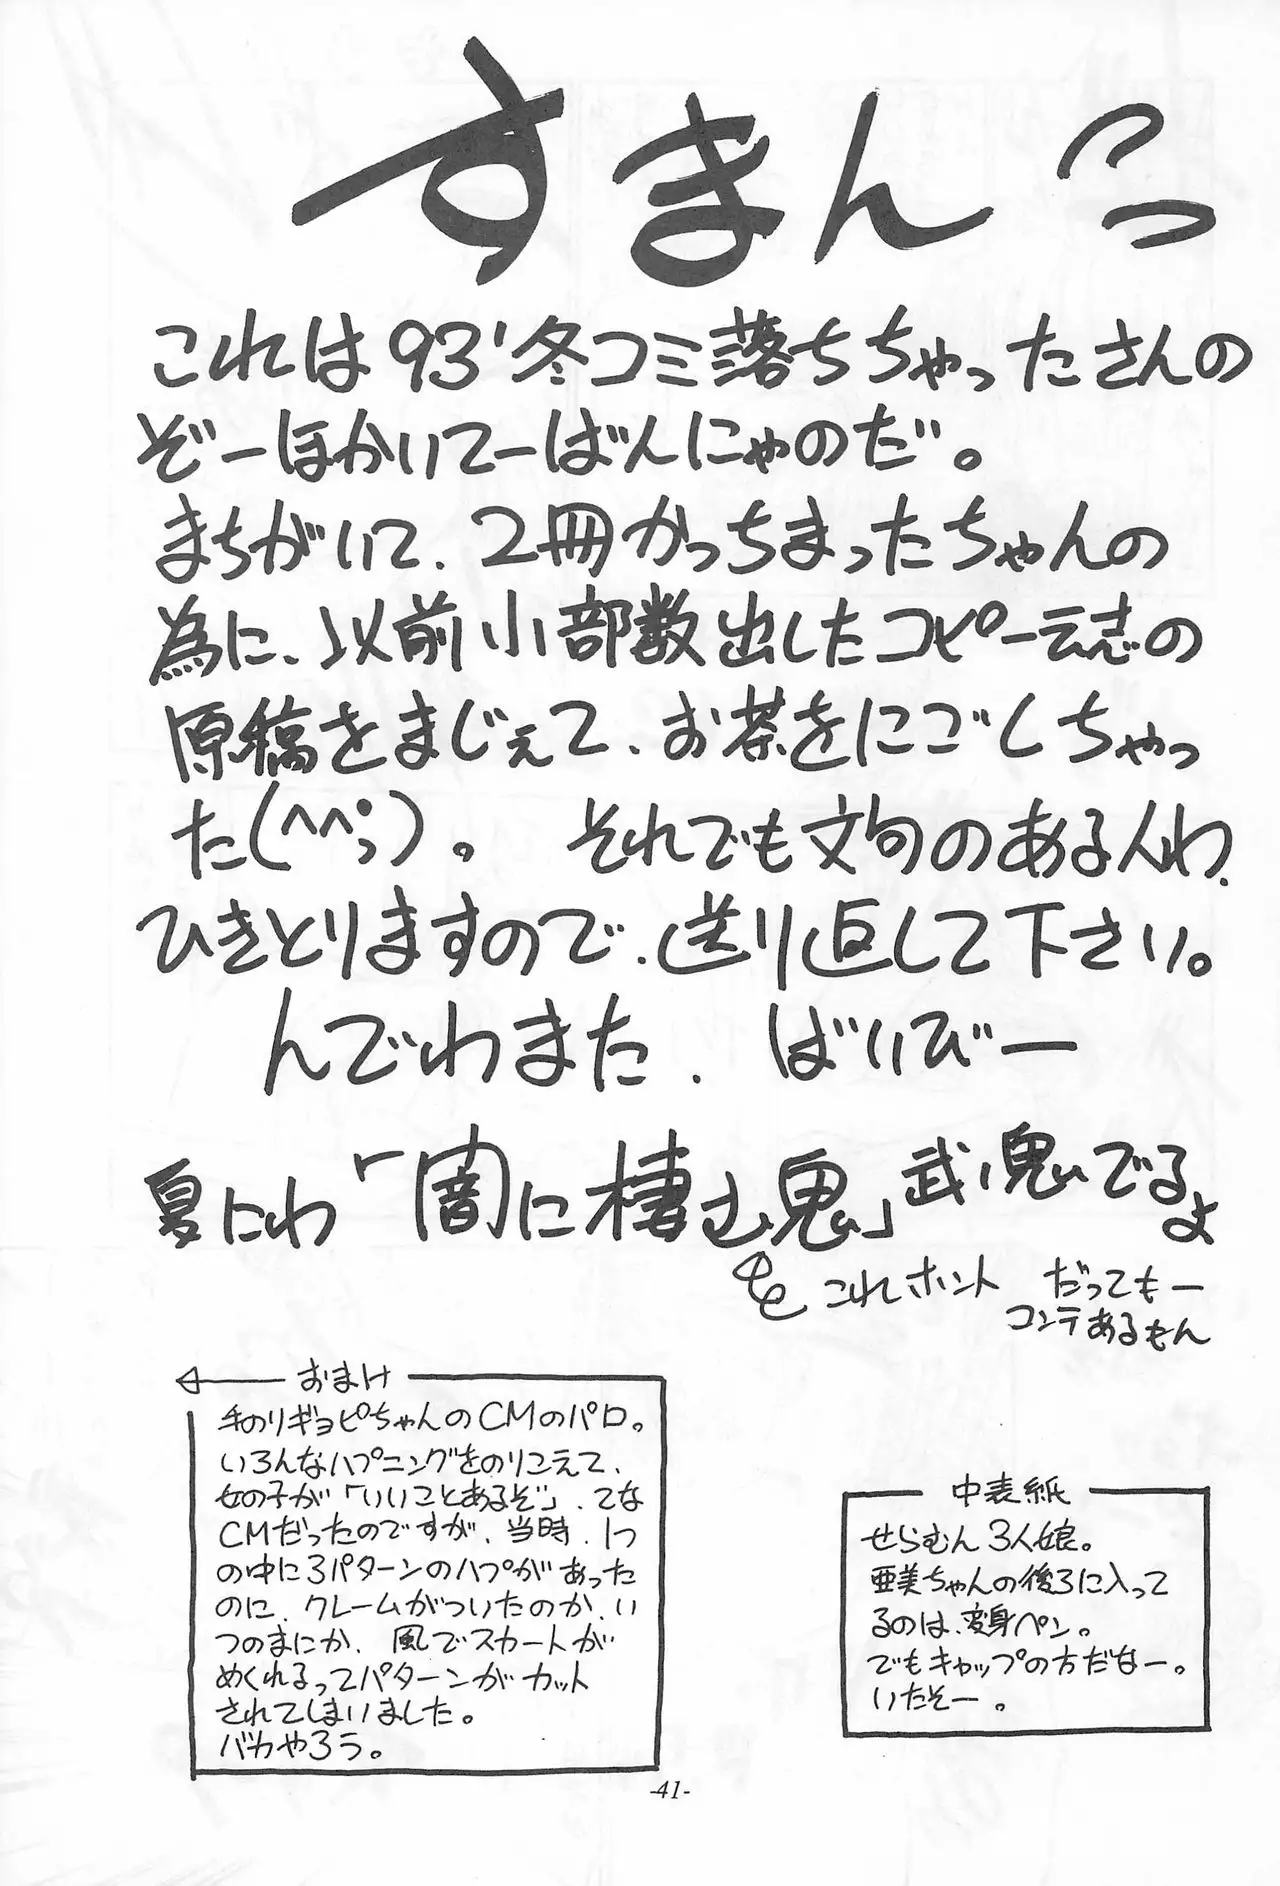 すまんっ
これは93'冬コミ落ちちゃったさんの
ぞーほかいてーばんにゃのだ。
まちがいて、2冊かっちまったちゃんの
為に、以前小部数出したコピー誌の
原稿をまじぇて、お茶をにごしちゃっ
た(^^っ)。 それでも文句のある人わ、
ひきとりますので、送り返して下さい。
んでわまた、ばいびー
夏にわ「闇に棲む鬼」武ノ鬼いでるよ
これホント だってもー
コンテあるもん
おまけ
手のりギョピちゃんのCMのパロ。
いろんなハプニングをのりこえて、
女の子が「いいことあるぞ」、てな
CMだったのですが、当時、1つ
の中に3パターンのハプがあった
のに、クレームがついたのか、い
つのまにか、風でスカートが
めくれるってパターンがカット
されてしまいました。
バカやろう。
中表紙
せらむん3人娘。
亜美ちゃんの後ろに入って
るのは、変身ペン。
でもキャップの方だなー。
いたそー。
-41-